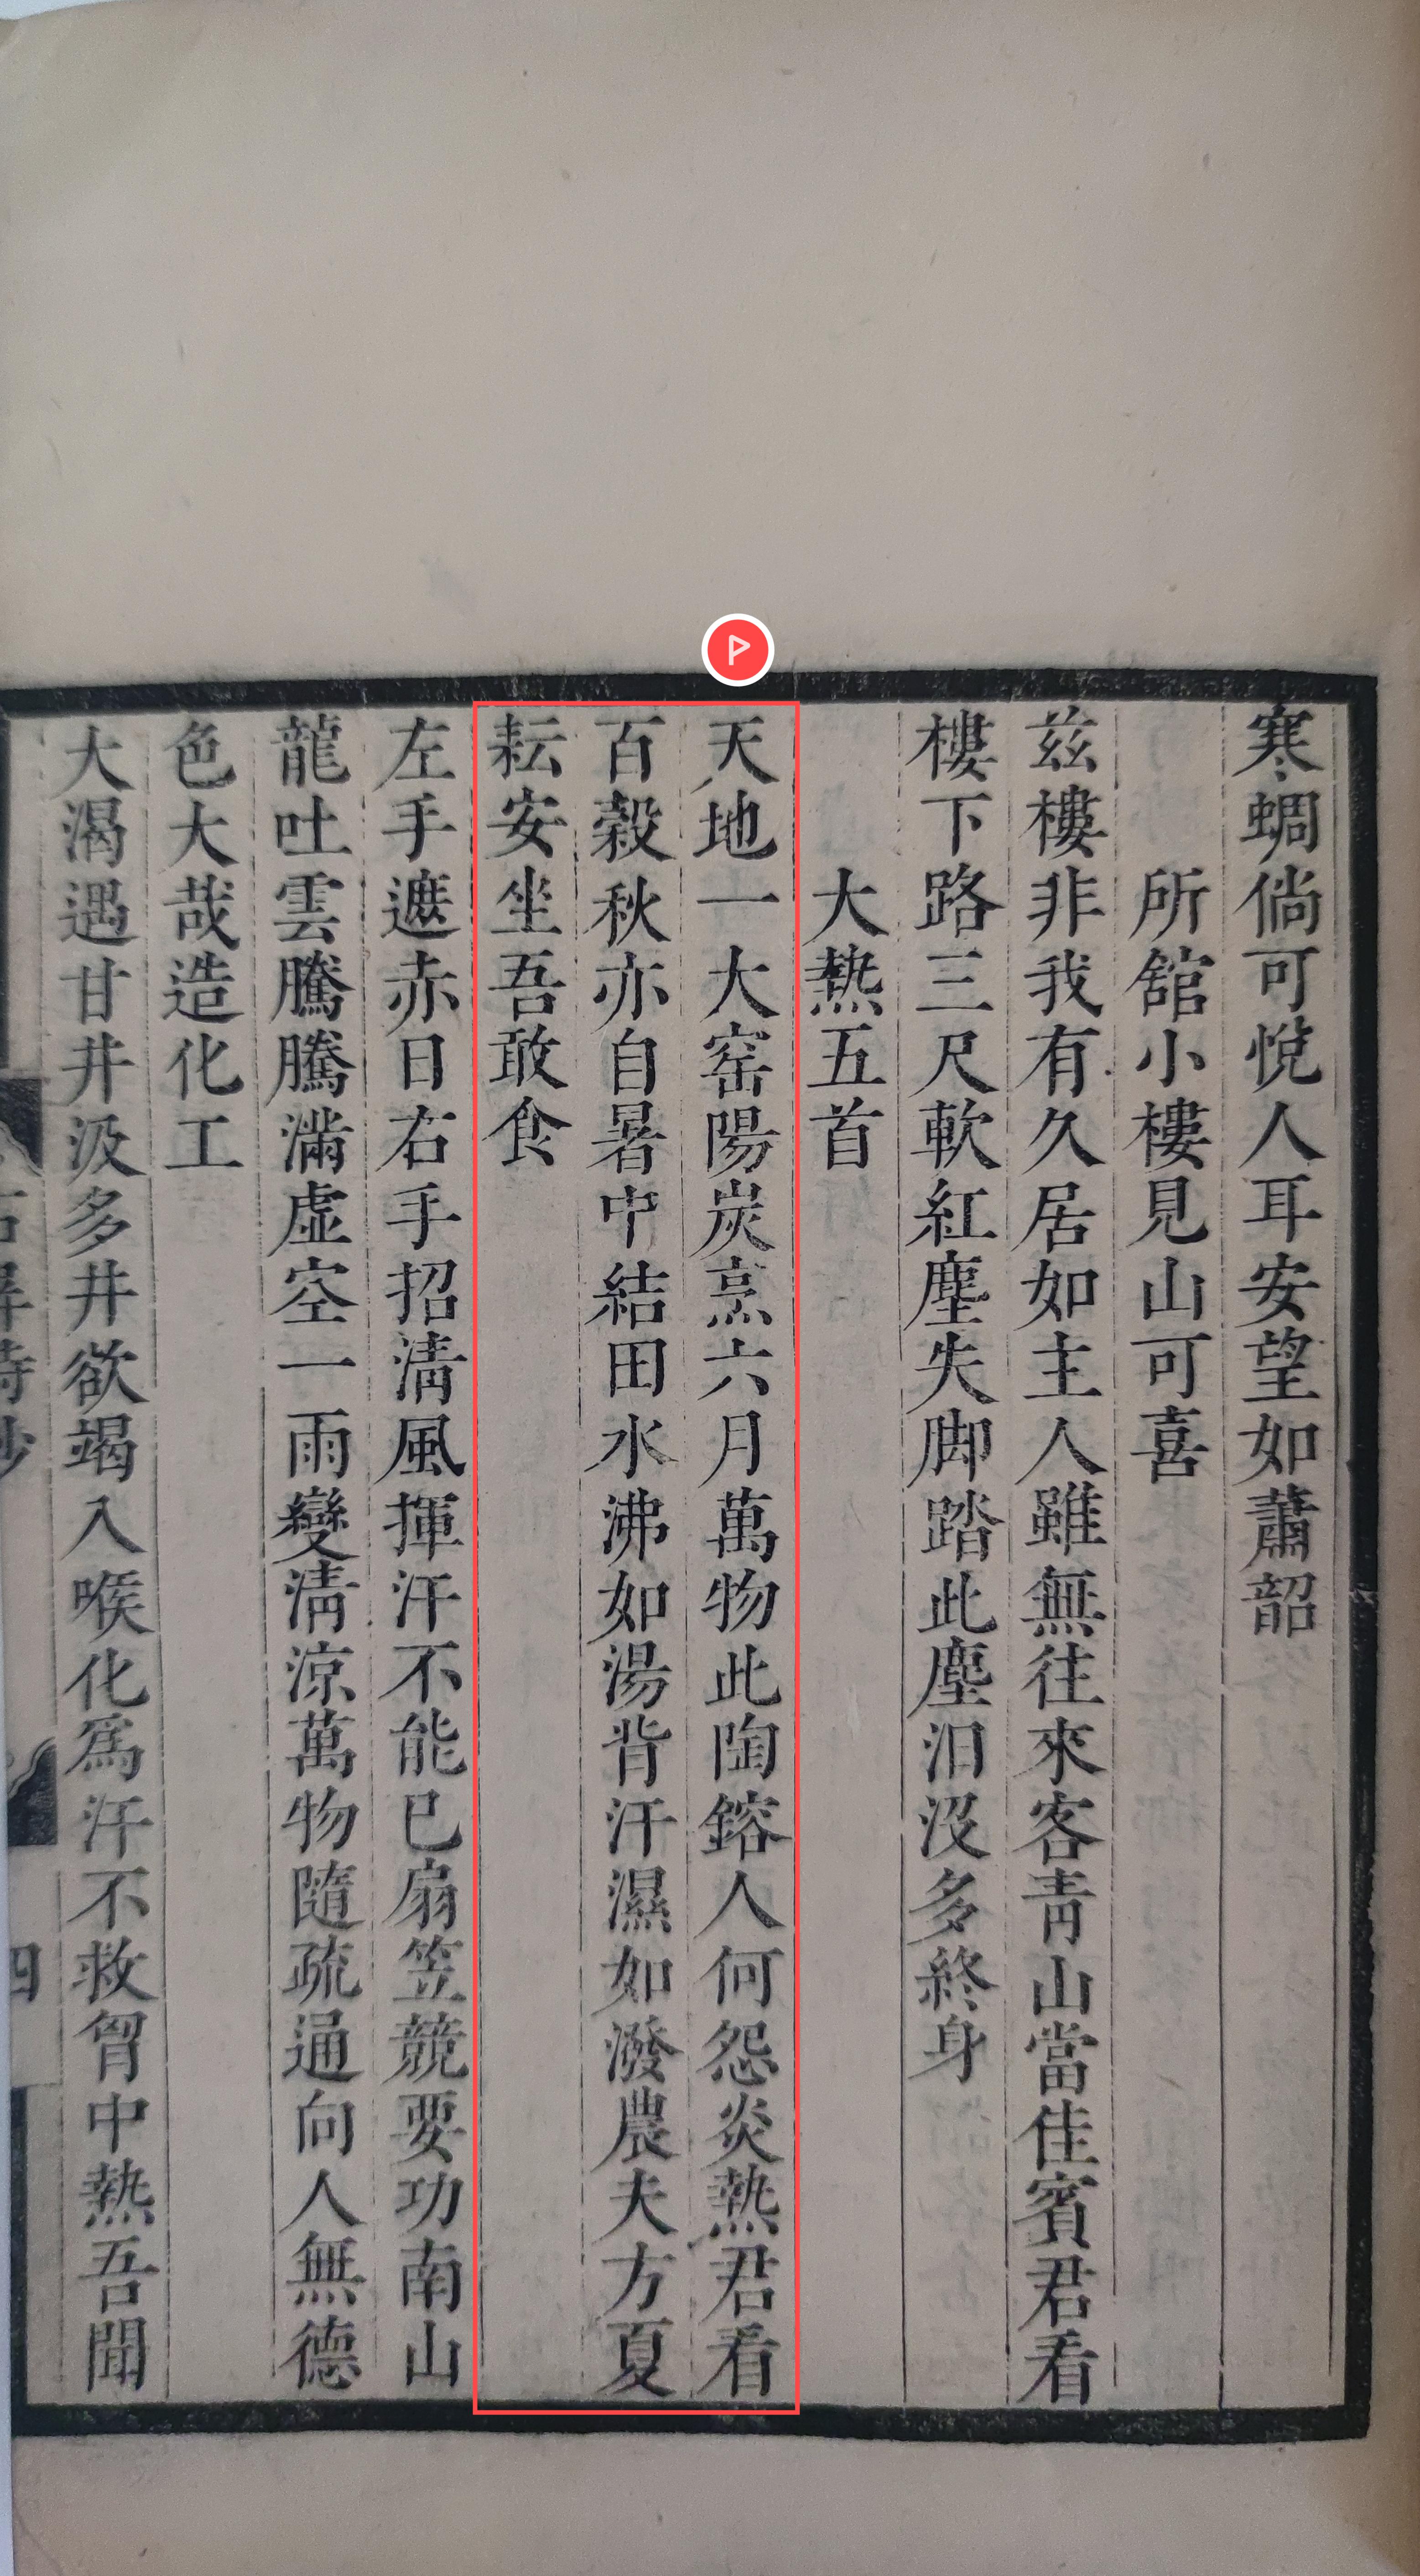 寒蜩倘可悅人耳安望如蕭韶
所舘小樓見山可喜
茲樓非我有久居如主人雖無往來客靑山當佳賓君看
樓下路三尺軟紅塵失脚踏此塵汨沒多終身
大熱五首
天地一大窑陽炭烹六月萬物此陶鎔人何怨炎熱君看
百穀秋亦自暑中結田水沸如湯背汗濕如潑農夫方夏
耘安坐吾敢食
左手遮赤日右手招淸風揮汗不能已扇笠競要功南山
龍吐雲騰騰滿虛空一雨變淸涼萬物隨疏通向人無德
色大哉造化工
大渴遇甘井汲多井欲竭入喉化爲汗不救胷中熱吾聞
石屏詩抄
四